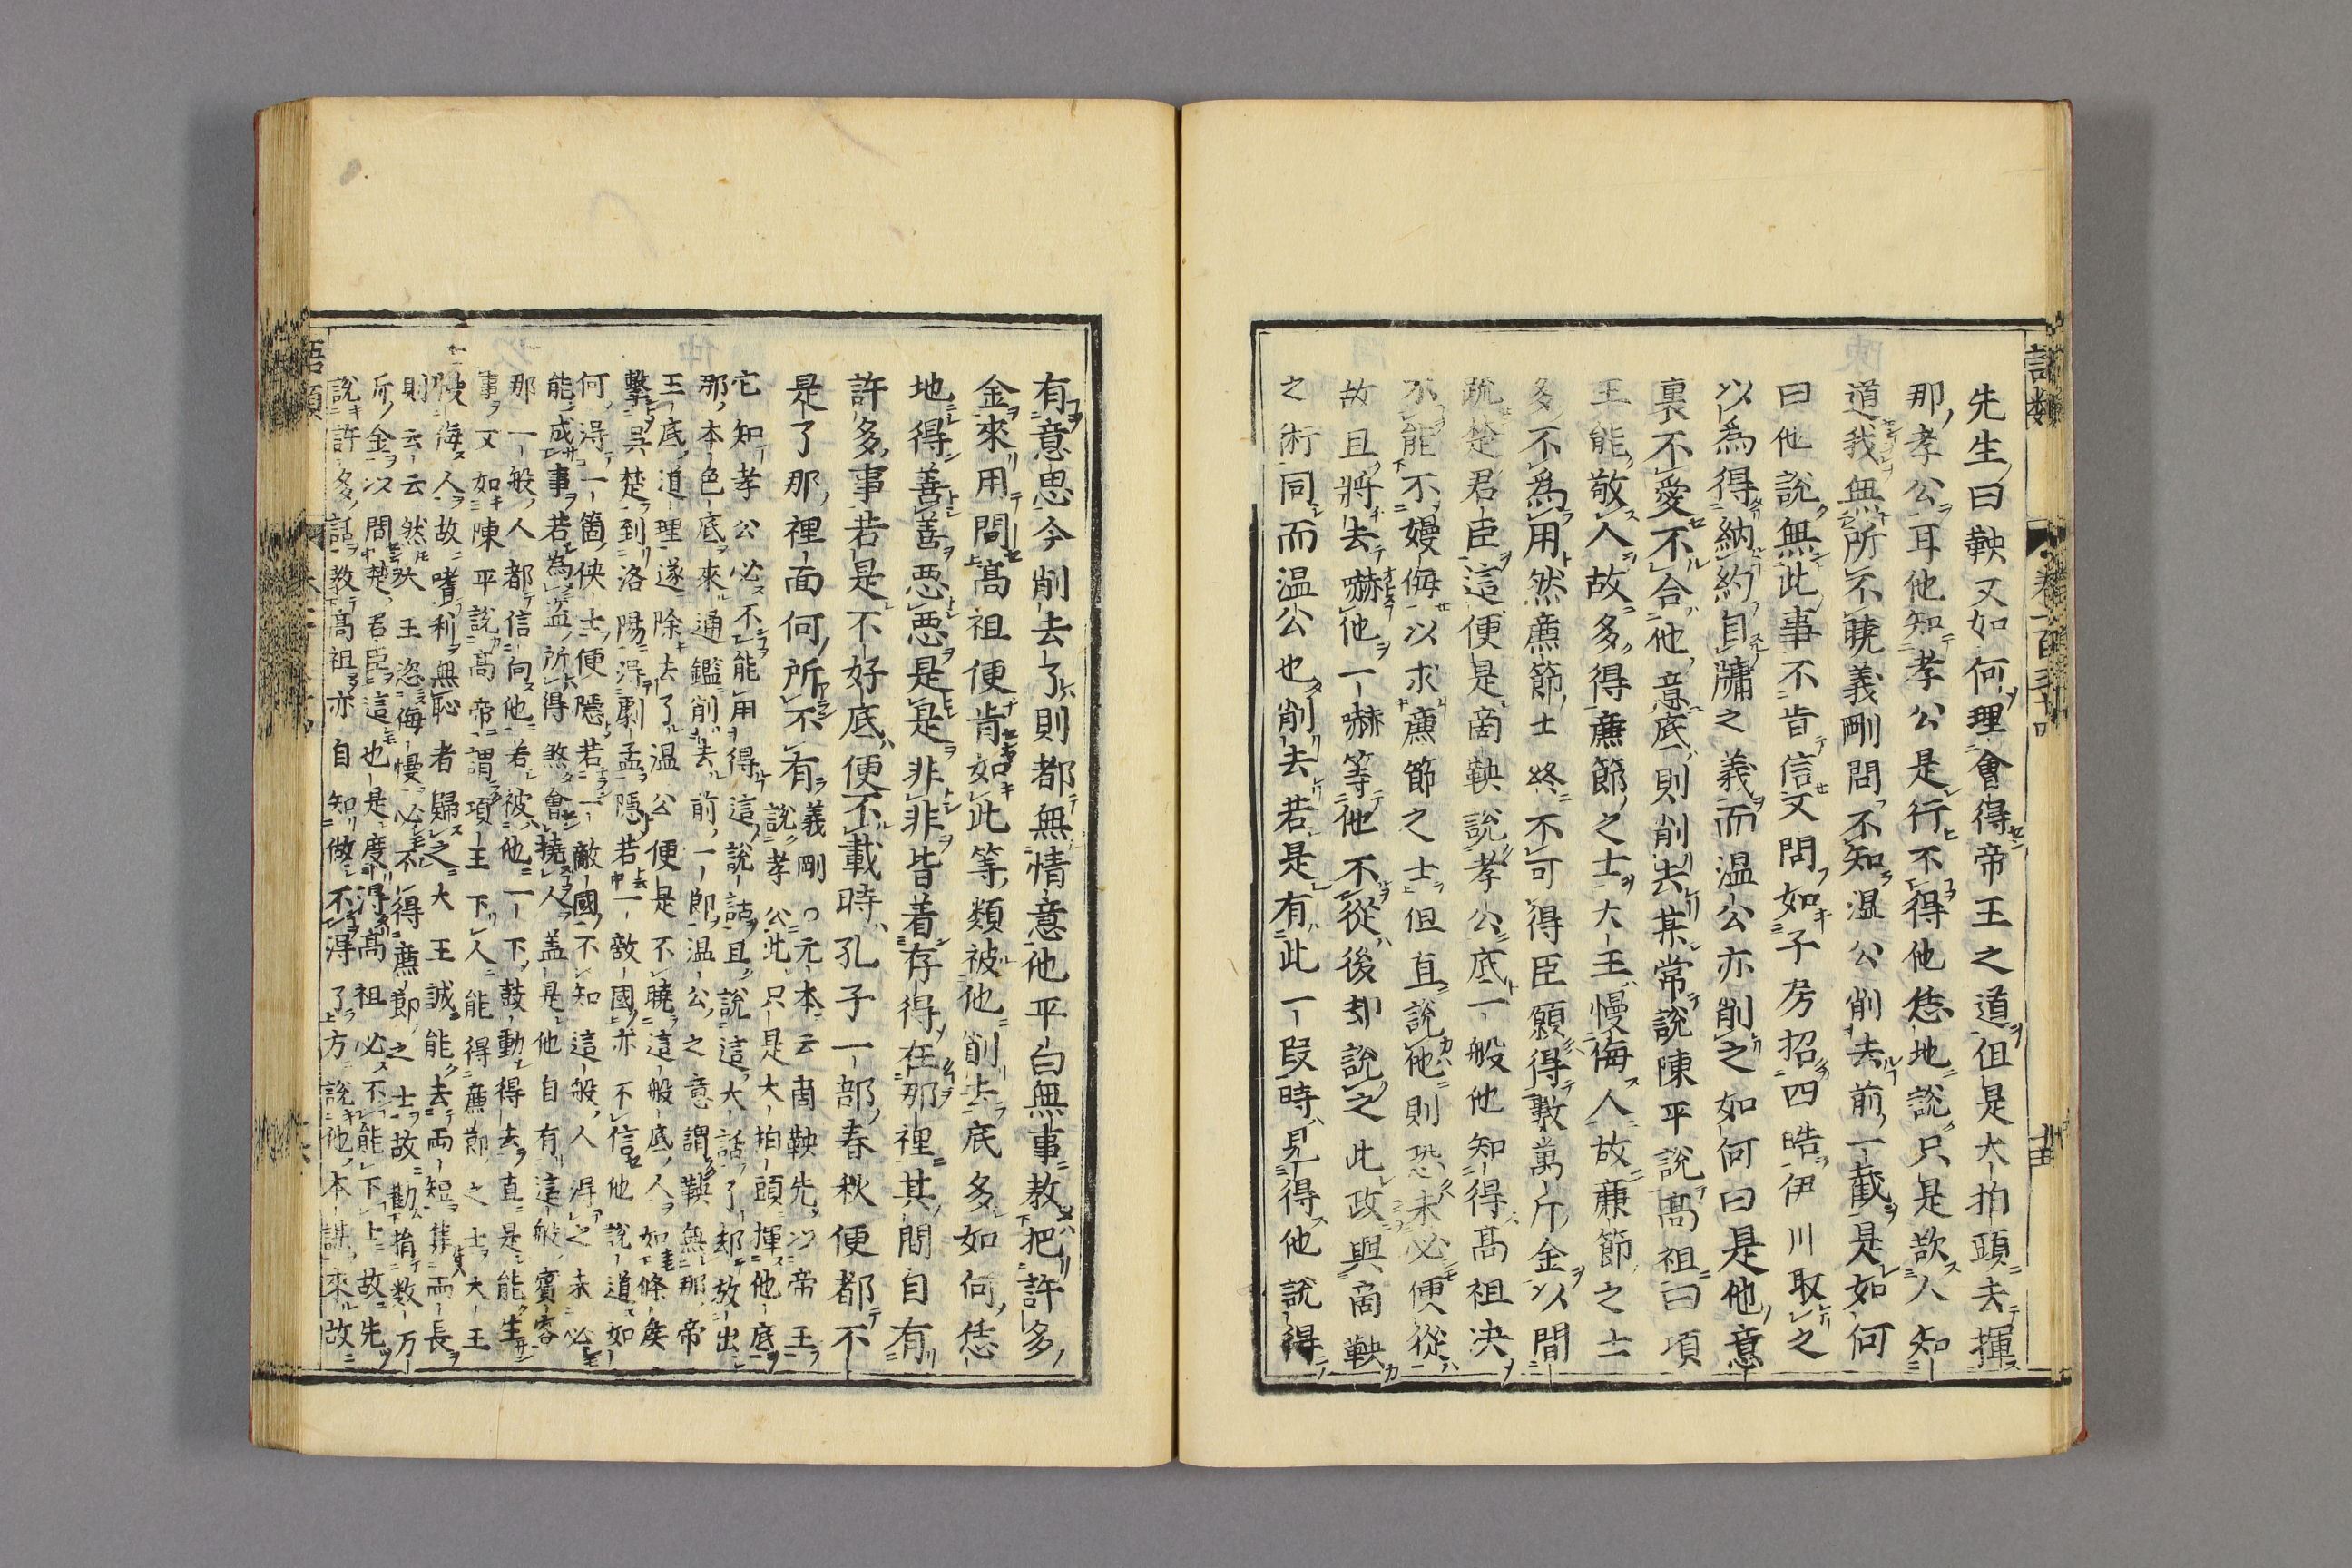 語類 卷一百三十四 十五
先生曰鞅又如何理會得帝王之道但是大拍頭去揮
那孝公耳他知孝公是行不得他恁地說只是欲人知
道我無所不曉義剛問不知温公削去前一截是如何
曰他說無此事不肯信又問如子房招四皓伊川取之
以為得納約自牖之義而温公亦削之如何曰是他意
裏不愛不合他意底則削去某常說陳平說高祖曰項
王能敬人故多得廉節之士大王慢侮人故廉節之士
多不為用然廉節士終不可得臣願得數萬斤金以間
疏楚君臣這便是商鞅說孝公底一般他知得高祖决
不能不嫚侮以求廉節之士但直說他則恐未必便從
故且將去嚇他一嚇等他不從後却說之此政與商鞅
之術同而温公也削去若是有此一段時見得他說得
有意思今削去了則都無情意他平白無事教把許多
金來用間高祖便肯如此等類被他削去底多如何恁
地得善善惡惡是是非非皆着存得在那裡其間自有
許多事若是不好底便不載時孔子一部春秋便都不
是了那裡面何所不有
義剛 ○元本云商鞅先以帝王
說孝公此只是大拍頭揮他底
它知孝公必不能用得這說話且說這大話了却放出
那本色底來通鑑削去前一節温公之意謂鞅無那帝
王底道理遂除去了温公便是不曉這般底人如條侯
擊吳楚到洛陽得劇孟隱若一敵國亦不信他說道如
何得一箇俠士便隱若一敵國不知這般人得之未必
能成事若為盗所得煞會撓人盖是他自有這般賓客
那一般人都信向他若被他一下鼓動得去直是能生
事又如陳平說高帝謂項王下人能得廉節之士大王
嫚侮人故嗜利無恥者歸之大王誠能去兩短集兩長
則云云然大王恣侮慢必不得廉節之士故勸捐数万
斤金以間楚君臣這也是度得高祖必不能下士故先
說許多話教高祖亦自知做不得了方說他本謀來故
語類